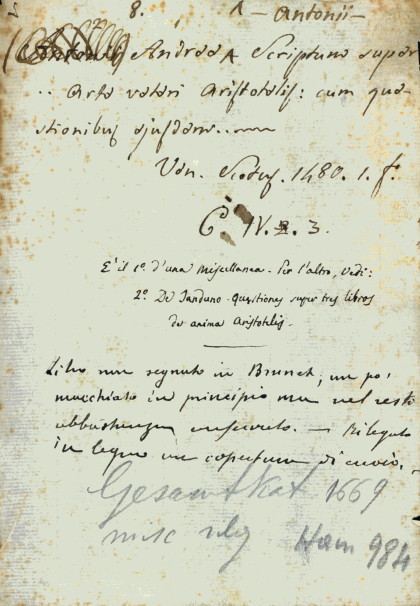 8. — Antonii —
Antonii Andreae Scriptum super
Arte veteri Aristotelis: cum que
stionibus ejusdem..
Ven. Scotus. 1480. 1. f.
C. IV. 3.
E' il 1º d'una Miscellanea. Per l'altro, vedi:
2º De Janduno. Questiones super tres libros
de anima Aristotelis.
Libro non segnato in Brunet, un po'
macchiato in principio ma nel resto
abbastanza conservato. — Rilegato
in legno con copertura di cuoio.
Gesamtkat 1669
misc Hain 984